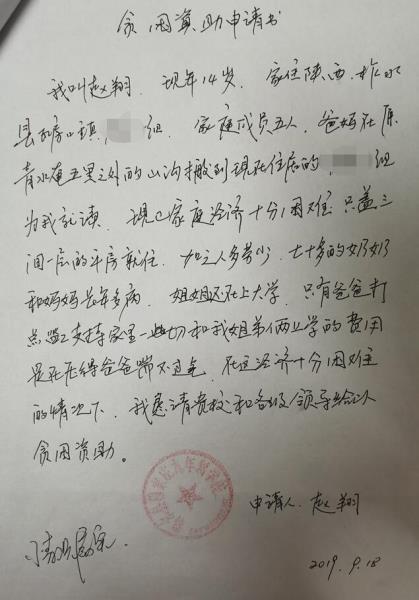 贫困资助申请书
我叫赵翔. 现年14岁. 家住陕西.柞水
县 镇 组. 家庭成员五人. 爸妈在原
五里之外的山沟搬到现在住房的 组
为我就读. 现已家庭经济十分困难 只盖三
间一层的平房就住. 加之人多劳少. 七十多的奶奶
和妈妈长年多病. 姐姐还在上大学. 只有爸爸打
点 支持家里一些切和我姐弟俩上学的费用
是死死得爸爸喘不过气. 在这经济十分困难
的情况下. 我恳请贵校和各级领导给以
贫困资助。
申请人. 赵翔
2019. 9. 18